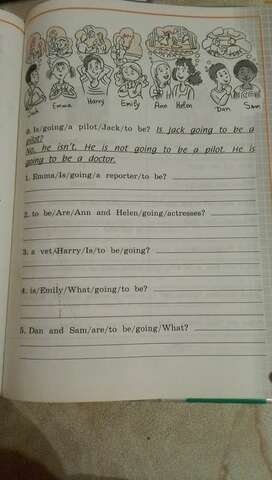 Jack
Emma
Harry
Emily
Ann Helen
Dan Sam
0. Is/going/a pilot/Jack/to be? Is jack going to be a
pilot?
No, he isn't. He is not going to be a pilot. He is
going to be a doctor.
1. Emma/Is/going/a reporter/to be?
2. to be/Are/Ann and Helen/going/actresses?
3. a vet/Harry/Is/to be/going?
4. is/Emily/What/going/to be?
5. Dan and Sam/are/to be/going/What?